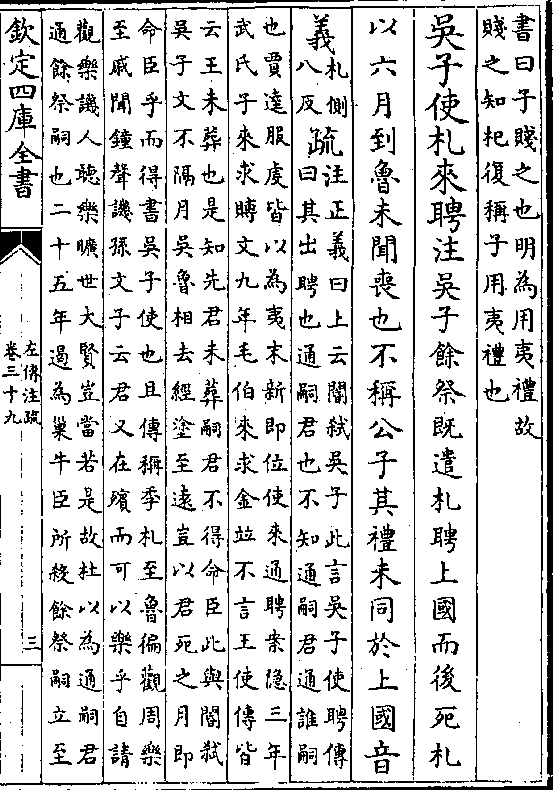 書曰子賤之也明為用夷禮故
賤之知杞復稱子用夷禮也
吳子使札來聘注吳子餘祭既遣札聘上國而後死札
以六月到魯未聞喪也不稱公子其禮未同於上國音
義札側八反疏注正義曰上云閽弒吳子此言吳子使聘傳
曰其出聘也通嗣君也不知通嗣君通誰嗣
也賈逵服虔皆以為夷末新即位使來通聘案隱三年
武氏子來求賻文九年毛伯來求金竝不言王使傳皆
云王未葬也是知先君未葬嗣君不得命臣此與閽弒
吳子文不隔月吳魯相去經塗至遠豈以君死之月即
命臣乎而得書吳子使也且傳稱季札至魯徧觀周樂
至戚聞鐘聲譏孫文子云君又在殯而可以樂乎自請
觀樂譏人聽樂曠世大賢豈當若是故杜以為通嗣君
通餘祭嗣也二十五年遏為巢牛臣所殺餘祭嗣立至
欽定四庫全書
左傳注疏
卷三十九
三